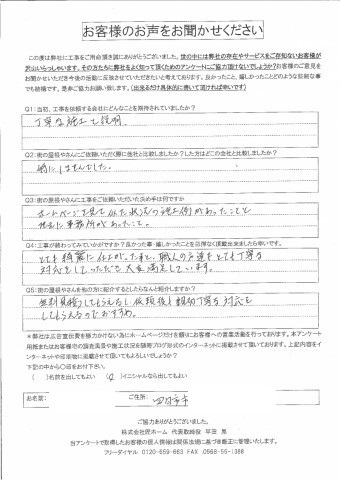 お客様のお声をお聞かせください
この度は弊社に工事をご用命頂き誠にありがとうございました。世の中には弊社の存在やサービスをご存知ないお客様が
沢山いらっしゃいます。その方たちに弊社をよく知って頂くためのアンケートにご協力頂けないでしょうか?お客様のご意見を
お聞かせいただき今後の活動に反映させていただきたいと考えております。良かったこと、嬉しかったことどのような些細な事
でも結構です。是非ご協力お願い致します。(出来るだけ具体的に書いて頂ければ幸いです)
Q1:当初、工事を依頼する会社にどんなことを期待されていましたか?
丁寧な施工と説明
Q2:街の屋根やさんにご依頼いただく際に他社と比較しましたか?した方はどこの会社と比較しましたか?
特にしませんでした。
Q3:街の屋根やさんに工事をご依頼いただいた決め手は何ですか
ホームページを見て似た状況の施工例があったことと
地元に事務所があったこと。
Q4:工事が終わってみていかがですか?良かった事・嬉しかったことを忌憚なく頂戴出来ましたら幸いです。
とても綺麗に仕上がったまた、職人の方達もとても丁寧な
対応をして下さっても大変満足しています。
Q5:街の屋根やさんを他の方に紹介するとしたらなんと紹介しますか?
無料見積りしてもらえるし依頼後も親切丁寧な対応を
してもらえるのでおすすめ。
※弊社は広告宣伝費を極力かけない為にホームページだけを頼りにお客様への営業活動を行っております。本アンケート
用紙またはお客様宅の調査風景や施工状況を随時ブログ形式のインターネットに掲載させて頂いております。上記内容をイ
ンターネットや印刷物に掲載させて頂いてもよろしいでしょうか?
下記の中から○印をお付け下さい。
( )名前を出してもよい (○)イニシャルなら出してもよい
お名前: ご住所:
ご協力ありがとうございました。
株式会社匠ホーム 代表取締役 平田 晃
当アンケートで取得したお客様の個人情報は関係法規に基づき厳正に管理いたします。
フリーダイヤル 0120-659-663 FAX 0568-55-1388